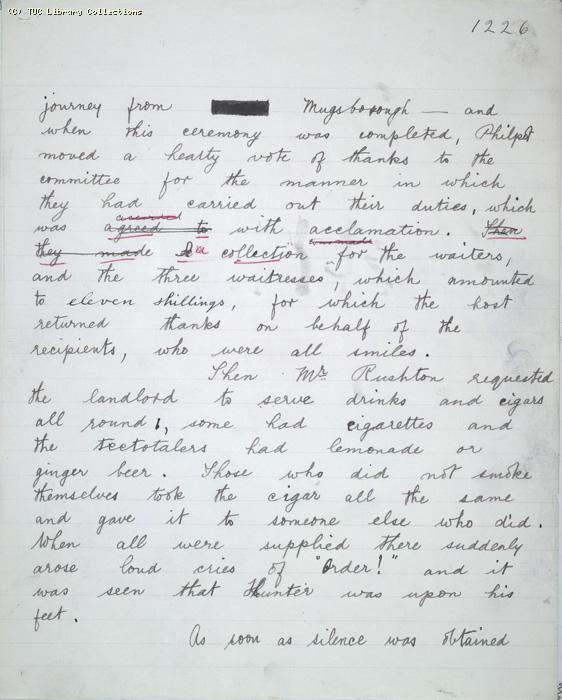 (C) TUC Library Collections
1226
journey from Mugsborough — and
when this ceremony was completed, Philpot
moved a hearty vote of thanks to the
committee for the manner in which
they had carried out their duties, which
accorded
was agreed to with acclamation. Then
was made
they made a collection for the waiters,
and the three waitresses, which amounted
to eleven shillings, for which the host
returned thanks on behalf of the
recipients, who were all smiles.
Then Mr Rushton requested
the landlord to serve drinks and cigars
all round, some had cigarettes and
the teetotalers had lemonade or
ginger beer. Those who did not smoke
themselves took the cigar all the same
and gave it to someone else who did.
When all were supplied there suddenly
arose loud cries of "Order!" and it
was seen that Hunter was upon his
feet.
As soon as silence was obtained